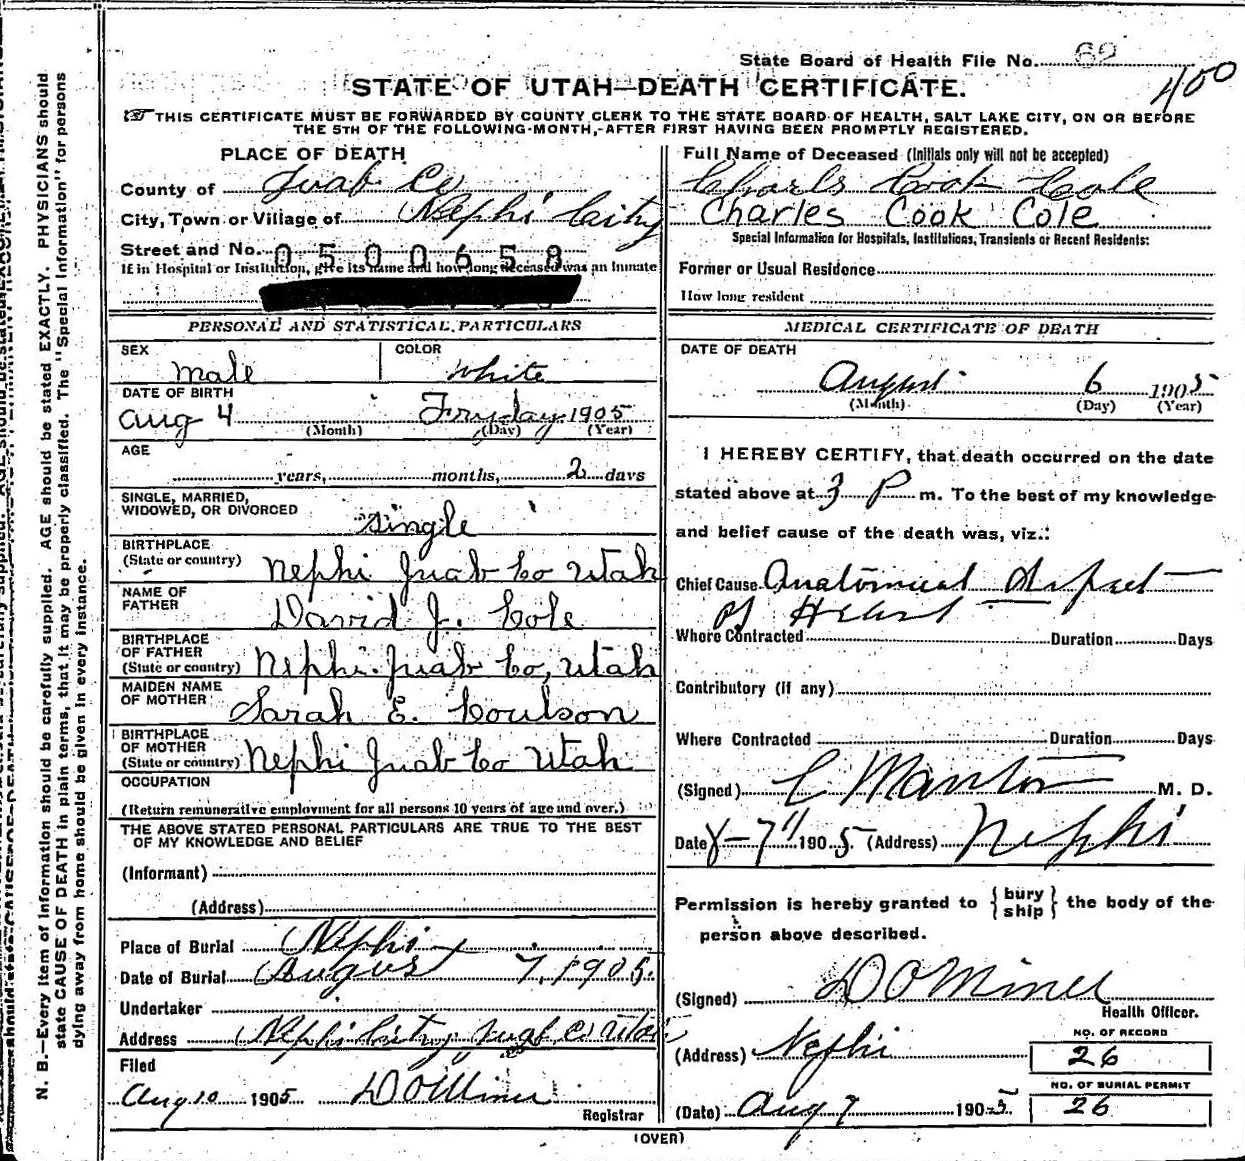 State Board of Health File No. 62
400
STATE OF UTAH—DEATH CERTIFICATE.
THIS CERTIFICATE MUST BE FORWARDED BY COUNTY CLERK TO THE STATE BOARD OF HEALTH, SALT LAKE CITY, ON OR BEFORE
THE 5TH OF THE FOLLOWING MONTH, AFTER FIRST HAVING BEEN PROMPTLY REGISTERED.
PLACE OF DEATH
County of Juab Co
City, Town or Village of Nephi City
Street and No. 0500658
If in Hospital or Institution, give its name and how long deceased was an Inmate
PERSONAL AND STATISTICAL PARTICULARS
SEX Male
COLOR White
DATE OF BIRTH
Aug 4 Fryday 1905
(Month) (Day) (Year)
AGE
years, months, 2 days
SINGLE, MARRIED,
WIDOWED, OR DIVORCED single
BIRTHPLACE
(State or country) Nephi Juab Co Utah
NAME OF
FATHER David J. Cole
BIRTHPLACE
OF FATHER
(State or country) Nephi Juab Co, Utah
MAIDEN NAME
OF MOTHER Sarah E. Coulson
BIRTHPLACE
OF MOTHER
(State or country) Nephi Juab Co Utah
OCCUPATION
(Return remunerative employment for all persons 10 years of age and over.)
THE ABOVE STATED PERSONAL PARTICULARS ARE TRUE TO THE BEST
OF MY KNOWLEDGE AND BELIEF
(Informant)
(Address)
Place of Burial Nephi
Date of Burial August 7, 1905.
Undertaker
Address Nephi City Juab Co Utah
Filed
Aug 10 1905 D O Miner
Registrar
Full Name of Deceased (Initials only will not be accepted)
Charls Cook Cole
Charles Cook Cole
Special Information for Hospitals, Institutions, Transients or Recent Residents:
Former or Usual Residence
How long resident
MEDICAL CERTIFICATE OF DEATH
DATE OF DEATH
August 6 1905
(Month) (Day) (Year)
I HEREBY CERTIFY, that death occurred on the date
stated above at 3 P m. To the best of my knowledge
and belief cause of the death was, viz.:
Chief Cause Anatomical
of Heart
Where Contracted Duration Days
Contributory (if any)
Where Contracted Duration Days
(Signed) M. D.
Date 8-7 1905 (Address) Nephi
Permission is hereby granted to { bury ship } the body of the
person above described.
(Signed) D O Miner
Health Officer.
(Address) Nephi
NO. OF RECORD
26
NO. OF BURIAL PERMIT
26
(Date) Aug 7 1905
(OVER)
N. B.—Every item of information should be carefully supplied. AGE should be stated EXACTLY. PHYSICIANS should
state CAUSE OF DEATH in plain terms, that it may be properly classified. The "Special Information" for persons
dying away from home should be given in every instance.